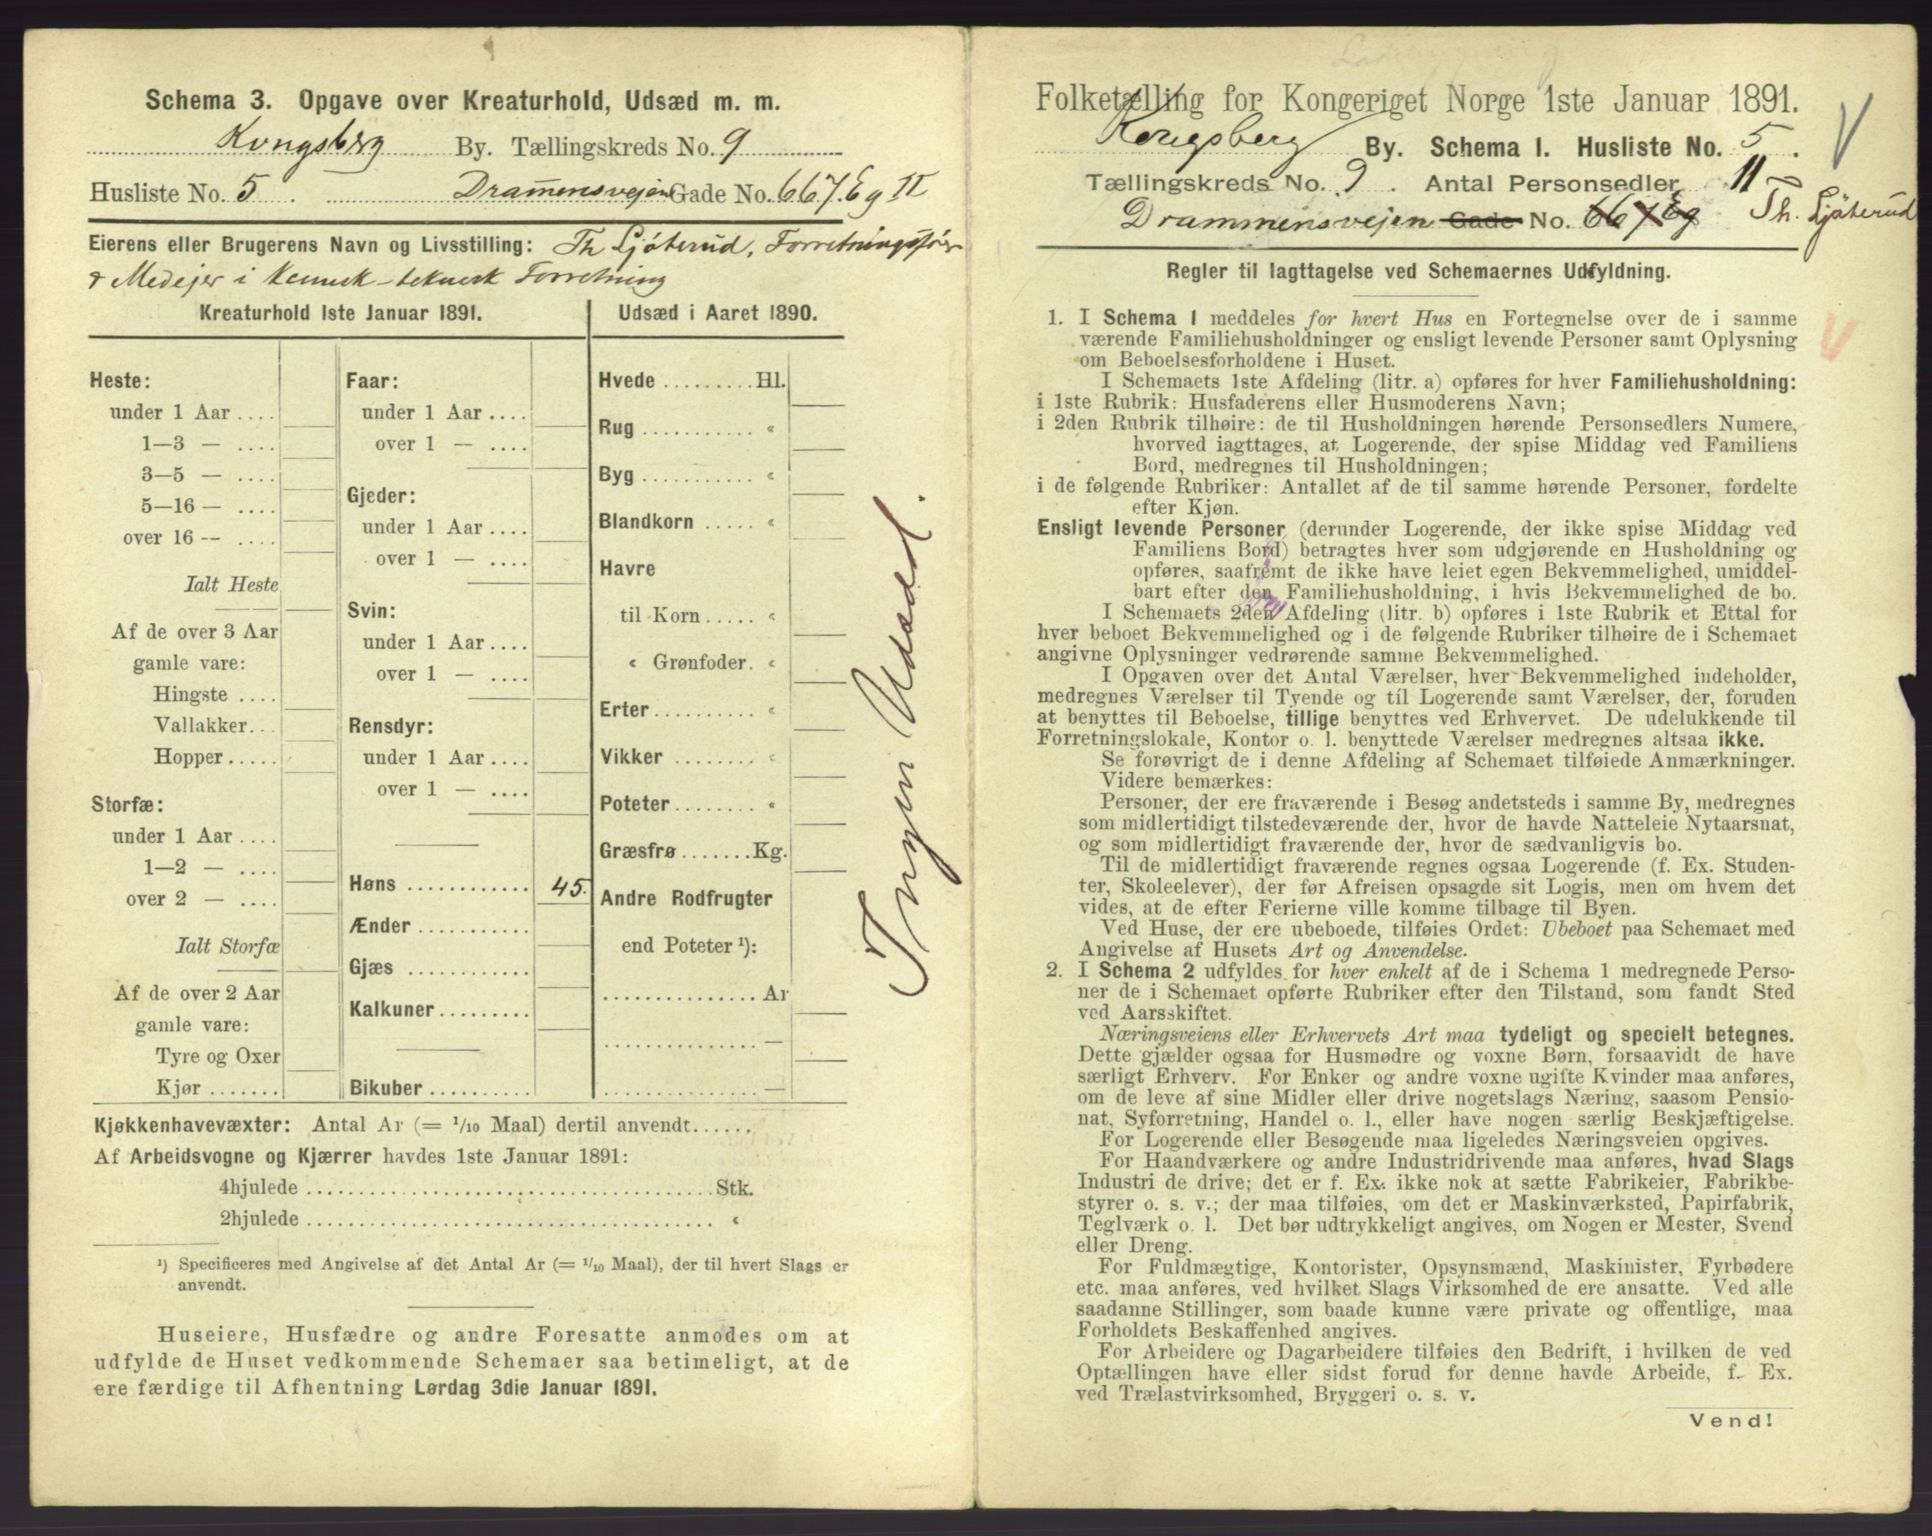 Schema 3. Opgave over Kreaturhold, Udsæd m. m.
Kongsberg By. Tællingskreds No. 9
Husliste No. 5 . Drammensvejen Gade No. 667. Eg II
Eierens eller Brugerens Navn og Livsstilling: Th Ljøterud, Forretningsfører
& Medejer i kemisk-teknisk Forretning
Kreaturhold 1ste Januar 1891.
Heste:
under 1 Aar ....
1—3 — ....
3—5 — ....
5—16 — ....
over 16 — ....
Ialt Heste
Af de over 3 Aar
gamle vare:
Hingste ....
Vallakker...
Hopper.....
Storfæ:
under 1 Aar ....
1—2 — ....
over 2 — ....
Ialt Storfæ
Af de over 2 Aar
gamle vare:
Tyre og Oxer
Kjør .......
Faar:
under 1 Aar ....
over 1 — ....
Gjeder:
under 1 Aar ....
over 1 — ....
Svin:
under 1 Aar ....
over 1 — ....
Rensdyr:
under 1 Aar ....
over 1 — ....
Høns ............ 45.
Ænder ...........
Gjæs ............
Kalkuner.........
Bikuber ..........
Udsæd i Aaret 1890.
Hvede .........Hl.
Rug ........... «
Byg ........... «
Blandkorn ..... «
Havre
til Korn..... «
« Grønfoder. «
Erter.......... «
Vikker ........ «
Poteter........ «
Græsfrø.......Kg.
Andre Rodfrugter
end Poteter ¹):
...............Ar
............... —
............... —
Ingen Udsæd.
Kjøkkenhavevæxter: Antal Ar (= 1/10 Maal) dertil anvendt......
Af Arbeidsvogne og Kjærrer havdes 1ste Januar 1891:
4hjulede ........................................Stk.
2hjulede ........................................ «
¹) Specificeres med Angivelse af det Antal Ar (= 1/10 Maal), der til hvert Slags er
anvendt.
Huseiere, Husfædre og andre Foresatte anmodes om at
udfylde de Huset vedkommende Schemaer saa betimeligt, at de
ere færdige til Afhentning Lørdag 3die Januar 1891.
Folketælling for Kongeriget Norge 1ste Januar 1891.
Kongsberg By. Schema 1. Husliste No. 5 .
Tællingskreds No. 9 . Antal Personsedler 11
Drammensvejen Gade No. 667 Eg Th. Ljøterud
Regler til Iagttagelse ved Schemaernes Udfyldning.
1. I Schema 1 meddeles for hvert Hus en Fortegnelse over de i samme
værende Familiehusholdninger og ensligt levende Personer samt Oplysning
om Beboelsesforholdene i Huset.
I Schemaets 1ste Afdeling (litr. a) opføres for hver Familiehusholdning:
i 1ste Rubrik: Husfaderens eller Husmoderens Navn;
i 2den Rubrik tilhøire: de til Husholdningen hørende Personsedlers Numere,
hvorved iagttages, at Logerende, der spise Middag ved Familiens
Bord, medregnes til Husholdningen;
i de følgende Rubriker: Antallet af de til samme hørende Personer, fordelte
efter Kjøn.
Ensligt levende Personer (derunder Logerende, der ikke spise Middag ved
Familiens Bord) betragtes hver som udgjørende en Husholdning og
opføres, saafremt de ikke have leiet egen Bekvemmelighed, umiddel-
bart efter den Familiehusholdning, i hvis Bekvemmelighed de bo.
I Schemaets 2den Afdeling (litr. b) opføres i 1ste Rubrik et Ettal for
hver beboet Bekvemmelighed og i de følgende Rubriker tilhøire de i Schemaet
angivne Oplysninger vedrørende samme Bekvemmelighed.
I Opgaven over det Antal Værelser, hver Bekvemmelighed indeholder,
medregnes Værelser til Tyende og til Logerende samt Værelser, der, foruden
at benyttes til Beboelse, tillige benyttes ved Erhvervet. De udelukkende til
Forretningslokale, Kontor o. l. benyttede Værelser medregnes altsaa ikke.
Se forøvrigt de i denne Afdeling af Schemaet tilføiede Anmærkninger.
Videre bemærkes:
Personer, der ere fraværende i Besøg andetsteds i samme By, medregnes
som midlertidigt tilstedeværende der, hvor de havde Natteleie Nytaarsnat,
og som midlertidigt fraværende der, hvor de sædvanligvis bo.
Til de midlertidigt fraværende regnes ogsaa Logerende (f. Ex. Studen-
ter, Skoleelever), der før Afreisen opsagde sit Logis, men om hvem det
vides, at de efter Ferierne ville komme tilbage til Byen.
Ved Huse, der ere ubeboede, tilføies Ordet: Ubeboet paa Schemaet med
Angivelse af Husets Art og Anvendelse.
2. I Schema 2 udfyldes for hver enkelt af de i Schema 1 medregnede Perso-
ner de i Schemaet opførte Rubriker efter den Tilstand, som fandt Sted
ved Aarsskiftet.
Næringsveiens eller Erhvervets Art maa tydeligt og specielt betegnes.
Dette gjælder ogsaa for Husmødre og voxne Børn, forsaavidt de have
særligt Erhverv. For Enker og andre voxne ugifte Kvinder maa anføres,
om de leve af sine Midler eller drive nogetslags Næring, saasom Pensio-
nat, Syforretning, Handel o. l., eller have nogen særlig Beskjæftigelse.
For Logerende eller Besøgende maa ligeledes Næringsveien opgives.
For Haandværkere og andre Industridrivende maa anføres, hvad Slags
Industri de drive; det er f. Ex. ikke nok at sætte Fabrikeier, Fabrikbe-
styrer o. s. v.; der maa tilføies, om det er Maskinværksted, Papirfabrik,
Teglværk o. l. Det bør udtrykkeligt angives, om Nogen er Mester, Svend
eller Dreng.
For Fuldmægtige, Kontorister, Opsynsmænd, Maskinister, Fyrbødere
etc. maa anføres, ved hvilket Slags Virksomhed de ere ansatte. Ved alle
saadanne Stillinger, som baade kunne være private og offentlige, maa
Forholdets Beskaffenhed angives.
For Arbeidere og Dagarbeidere tilføies den Bedrift, i hvilken de ved
Optællingen have eller sidst forud for denne havde Arbeide, f. Ex.
ved Trælastvirksomhed, Bryggeri o. s. v.
Vend!